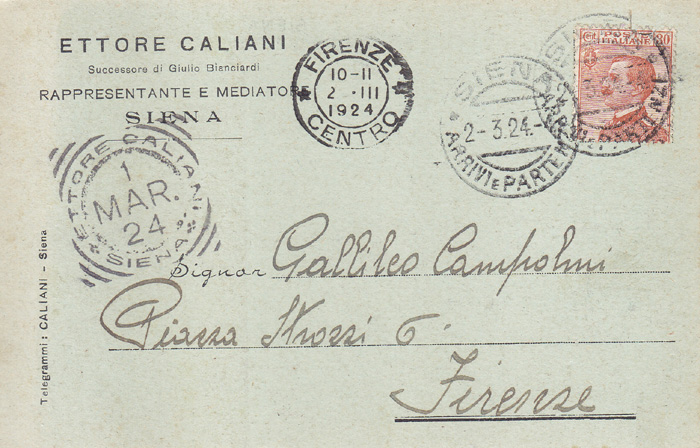 ETTORE CALIANI
Successore di Giulio Bianciardi
RAPPRESENTANTE E MEDIATORE
SIENA
FIRENZE
10-11
2 · III
1924
CENTRO
SIENA
2-3.24.-
ARRIVI E PARTEN
POSTE
ITALIANE
30
ETTORE CALIANI
1
MAR.
24
SIENA
Telegrammi: CALIANI - Siena
Signor Gallileo Campolmi
Piazza Strozzi 6.
Firenze